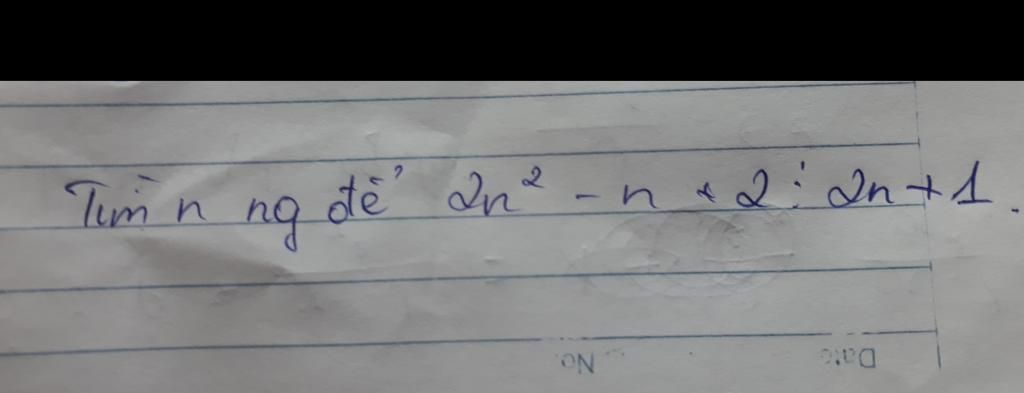 Tìm n ng để 2n² - n + 2 ⋮ 2n + 1.
No.
Date